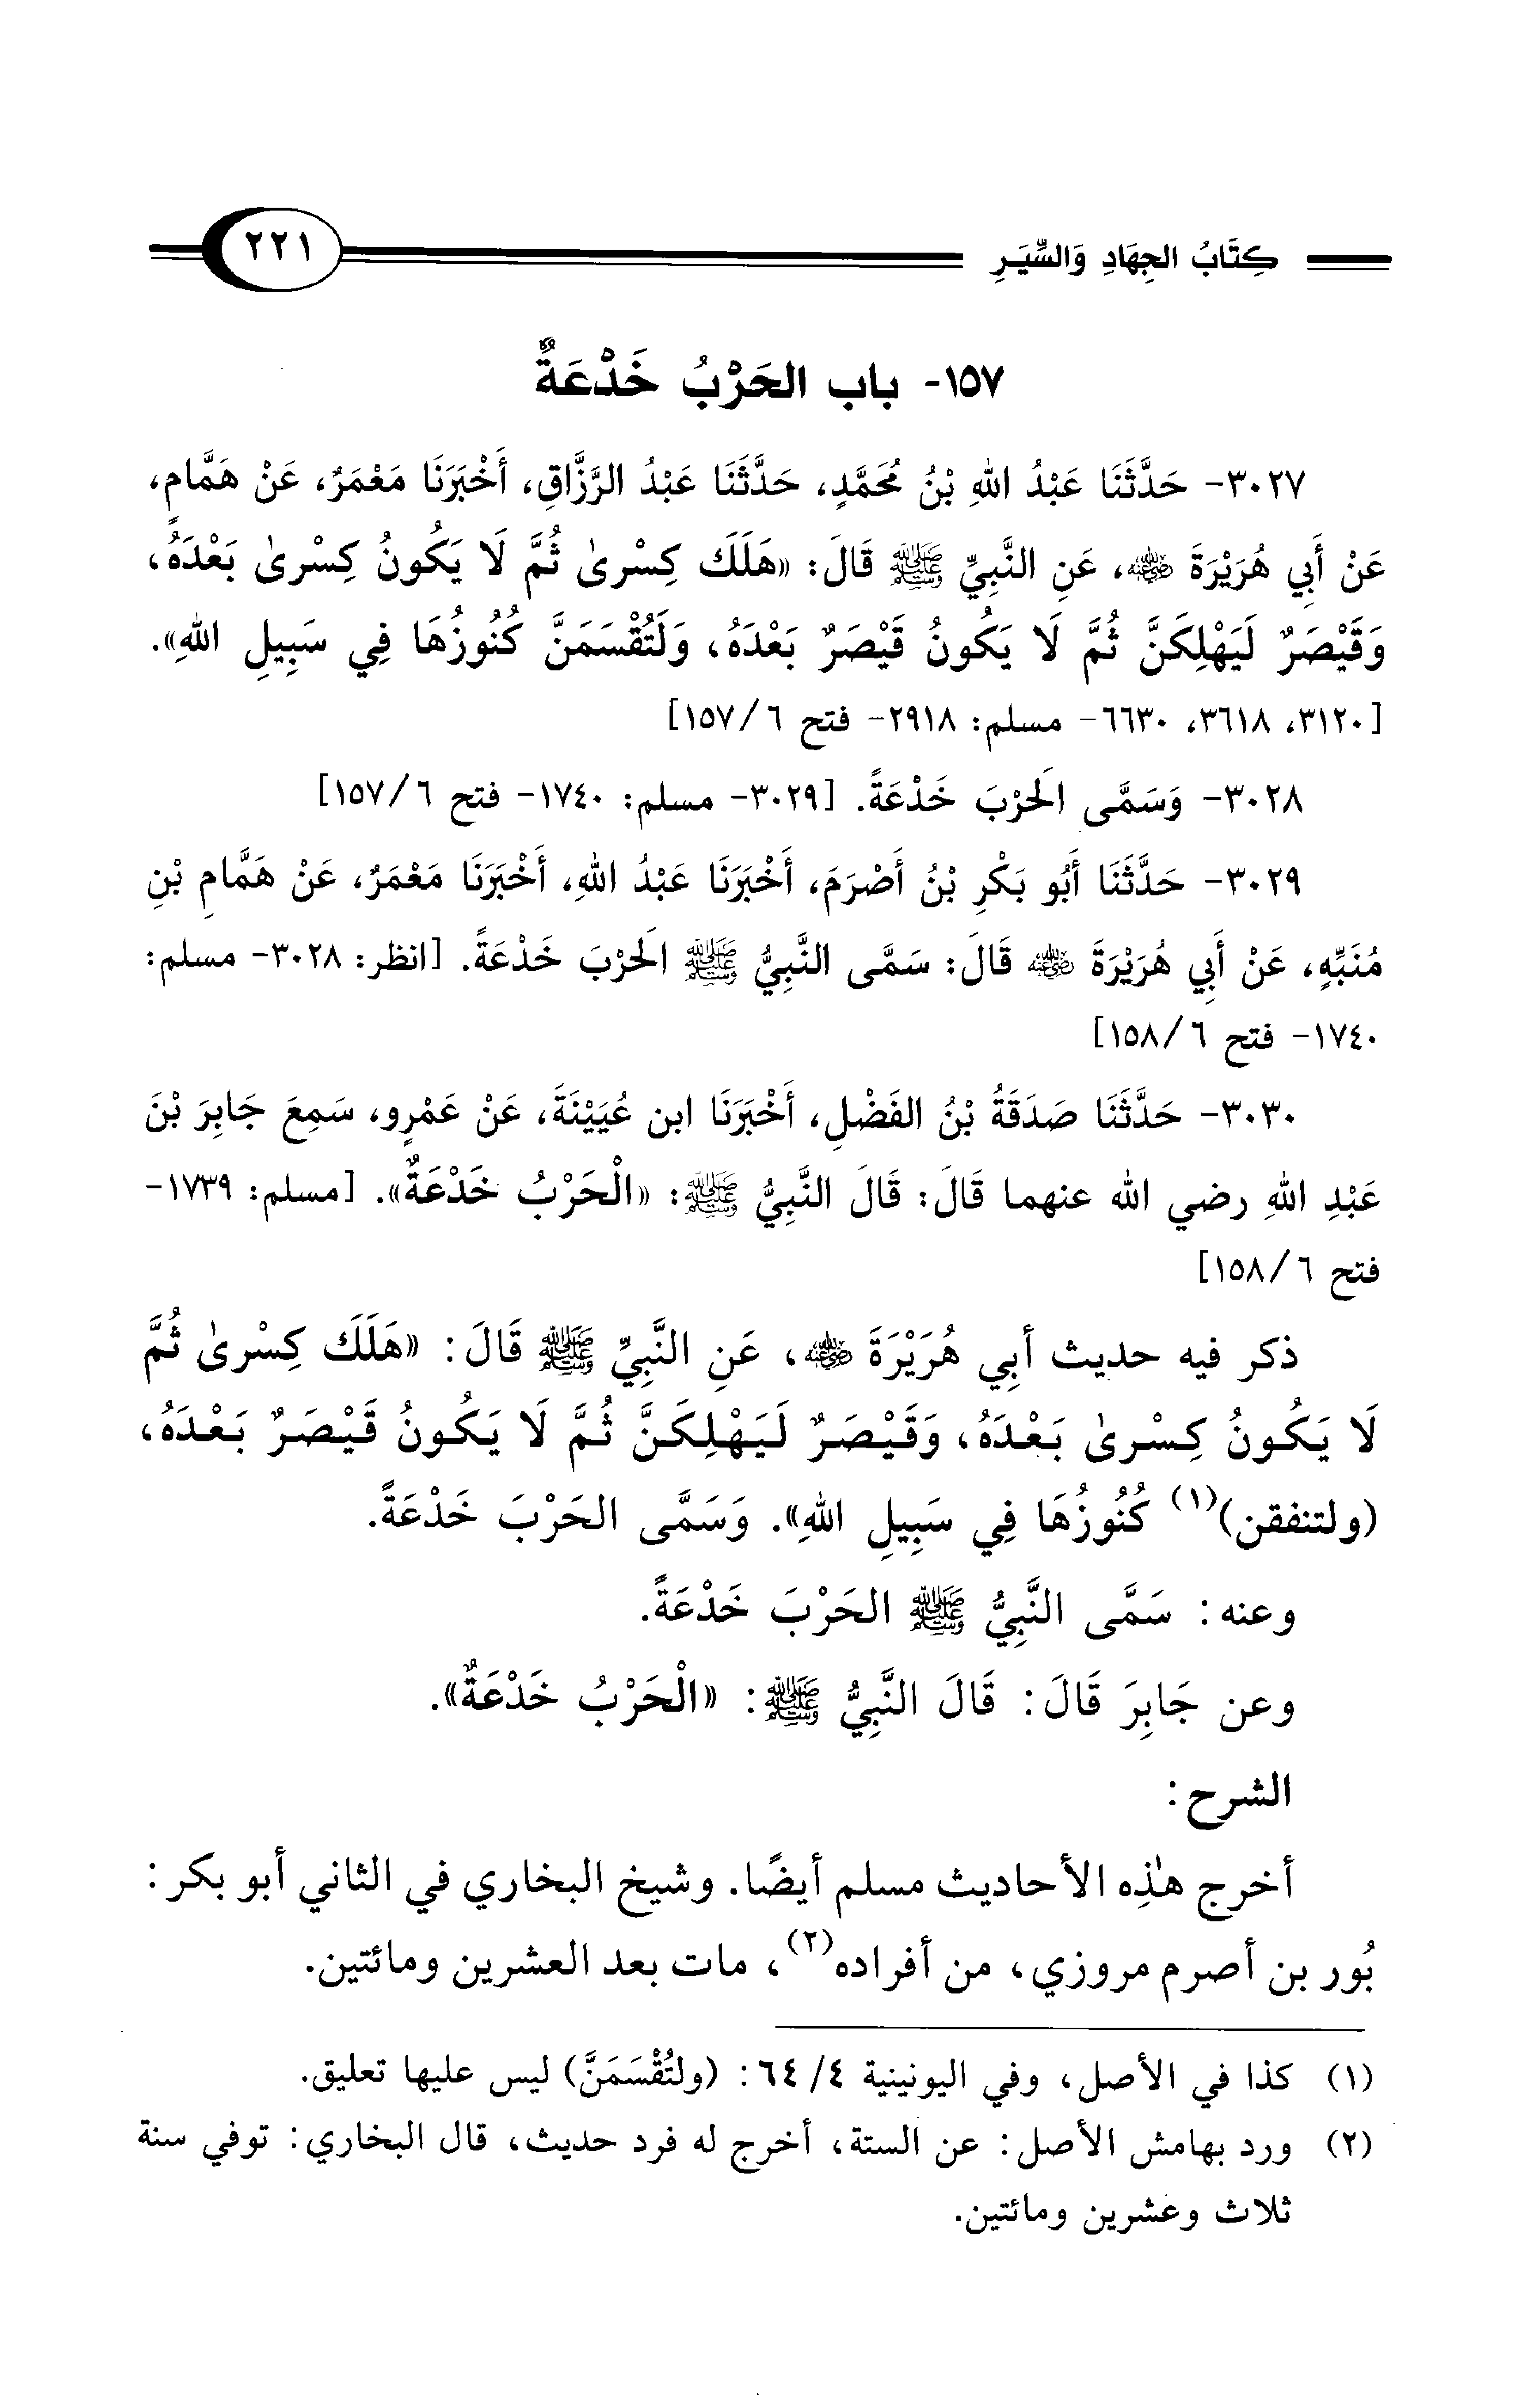 كِتَابُ الجِهَادِ وَالسِّيَرِ ٢٢١
١٥٧- باب الحَرْبُ خَدْعَةٌ
٣٠٢٧- حَدَّثَنَا عَبْدُ اللهِ بْنُ مُحَمَّدٍ، حَدَّثَنَا عَبْدُ الرَّزَّاقِ، أَخْبَرَنَا مَعْمَرٌ، عَنْ هَمَّامٍ،
عَنْ أَبِي هُرَيْرَةَ رضي الله عنه، عَنِ النَّبِيِّ ﷺ قَالَ: «هَلَكَ كِسْرىٰ ثُمَّ لَا يَكُونُ كِسْرىٰ بَعْدَهُ،
وَقَيْصَرٌ لَيَهْلِكَنَّ ثُمَّ لَا يَكُونُ قَيْصَرٌ بَعْدَهُ، وَلَتُقْسَمَنَّ كُنُوزُهَا فِي سَبِيلِ اللهِ».
[٣١٢٠، ٣٦١٨، ٦٦٣٠- مسلم: ٢٩١٨- فتح ٦/١٥٧]
٣٠٢٨- وَسَمَّى الَحرْبَ خَدْعَةً. [٣٠٢٩- مسلم: ١٧٤٠- فتح ٦/١٥٧]
٣٠٢٩- حَدَّثَنَا أَبُو بَكْرِ بْنُ أَصْرَمَ، أَخْبَرَنَا عَبْدُ اللهِ، أَخْبَرَنَا مَعْمَرٌ، عَنْ هَمَّامِ بْنِ
مُنَبِّهٍ، عَنْ أَبِي هُرَيْرَةَ رضي الله عنه قَالَ: سَمَّى النَّبِيُّ ﷺ الَحرْبَ خَدْعَةً. [انظر: ٣٠٢٨- مسلم:
١٧٤٠- فتح ٦/١٥٨]
٣٠٣٠- حَدَّثَنَا صَدَقَةُ بْنُ الفَضْلِ، أَخْبَرَنَا ابن عُيَيْنَةَ، عَنْ عَمْرٍو، سَمِعَ جَابِرَ بْنَ
عَبْدِ اللهِ رضي الله عنهما قَالَ: قَالَ النَّبِيُّ ﷺ: «الْحَرْبُ خَدْعَةٌ». [مسلم: ١٧٣٩-
فتح ٦/١٥٨]
ذكر فيه حديث أَبِي هُرَيْرَةَ رضي الله عنه، عَنِ النَّبِيِّ ﷺ قَالَ: «هَلَكَ كِسْرىٰ ثُمَّ
لَا يَكُونُ كِسْرىٰ بَعْدَهُ، وَقَيْصَرٌ لَيَهْلِكَنَّ ثُمَّ لَا يَكُونُ قَيْصَرٌ بَعْدَهُ،
(ولتنفقن)(١) كُنُوزُهَا فِي سَبِيلِ اللهِ». وَسَمَّى الحَرْبَ خَدْعَةً.
وعنه: سَمَّى النَّبِيُّ ﷺ الحَرْبَ خَدْعَةً.
وعن جَابِرَ قَالَ: قَالَ النَّبِيُّ ﷺ: «الْحَرْبُ خَدْعَةٌ».
الشرح:
أخرج هذِه الأحاديث مسلم أيضًا. وشيخ البخاري في الثاني أبو بكر:
بُور بن أصرم مروزي، من أفراده(٢)، مات بعد العشرين ومائتين.
(١) كذا في الأصل، وفي اليونينية ٤/٦٤: (ولتُقْسَمَنَّ) ليس عليها تعليق.
(٢) ورد بهامش الأصل: عن الستة، أخرج له فرد حديث، قال البخاري: توفي سنة
ثلاث وعشرين ومائتين.